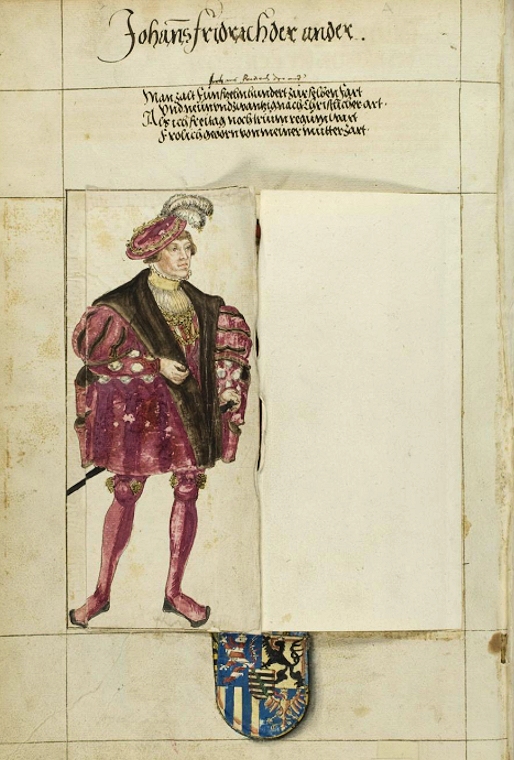 Johañs fridrich der ander.
Johans Fridrich der ander
Man zalt Funfzehnhundert zur selben fart
Vnd neun vnd zwantzig nach Christlicher art.
Als ich freitag noch trium regum wart
Frolich geborn von meiner mutter zart.